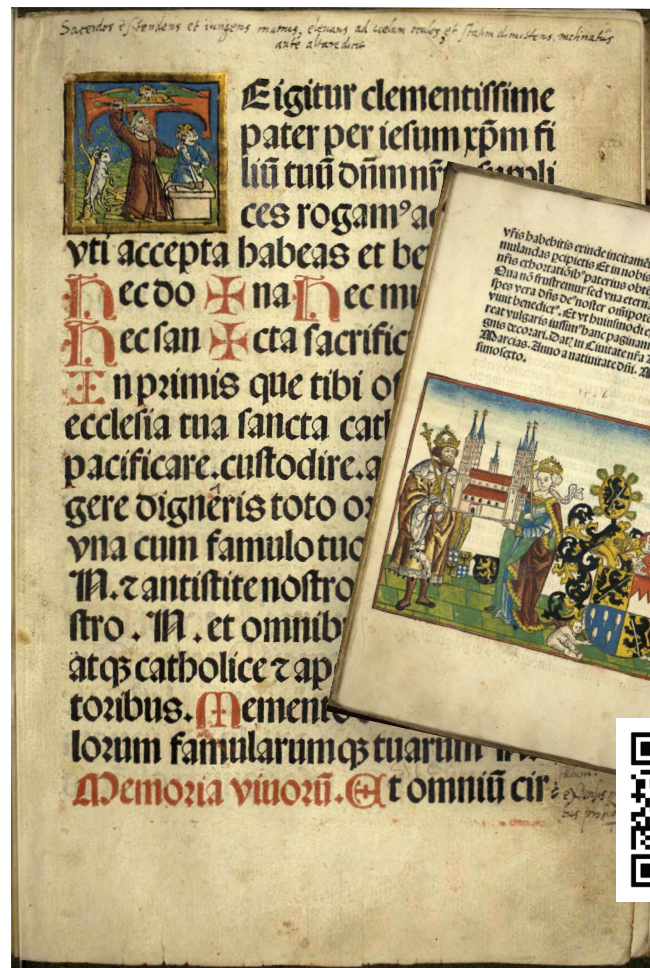 Sacerdos extendens et iungens manus, eleuans ad coelum oculos, et statim dimittens, inclinatus
ante altare dicit
TEigitur clementissime
pater per iesum xp̄m fi
liū tuū dn̄m nr̄
ces rogamꝰ ac
vti accepta habeas et be
Hec do ✠ na Hec mu
Hec san ✠ cta sacrific
Inprimis que tibi of
ecclesia tua sancta cath
pacificare.custodire.a
gere digneris toto or
vna cum famulo tuo
N.⁊ antistite nostro
stro . N . et omnib
atqꝫ catholice ⁊ ap
toribus. Memento
lorum famularumqꝫ tuarum
Memoria viuorū. Et omniū cir
vr̄is habebitis exinde incitamē
mulandas pcipietis Et in nobis
nr̄is exhortatiōibꝰ paterius obte
Qua nō frustremur sed vna etern
spes vera dn̄s deꝰ noster om̄ipote
viuit benedictꝰ. Et vt huiusmodi e
reat vulgaris iussimꝰ hanc paginam
gnis decorari. Datꝫ in Ciuitate nr̄a
Marcias. Anno a natiuitate dn̄i. M
simosexto.